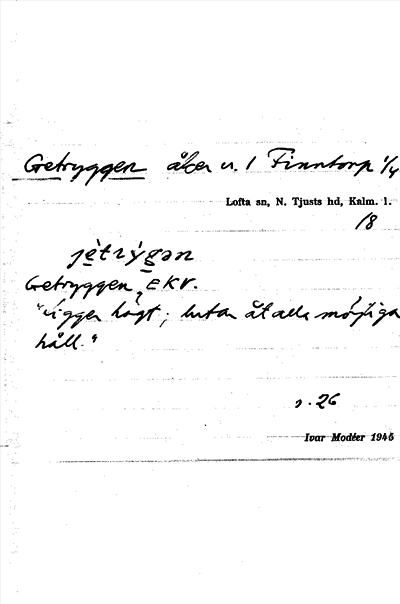 Getryggen åker n. 1 Finntorp 1/4
Lofta sn, N. Tjusts hd, Kalm. l.
18
jètrýgən
Getryggen, EKV.
"Ligger högt; lutar åt alla möjliga
håll."
s. 26
Ivar Modéer 1945